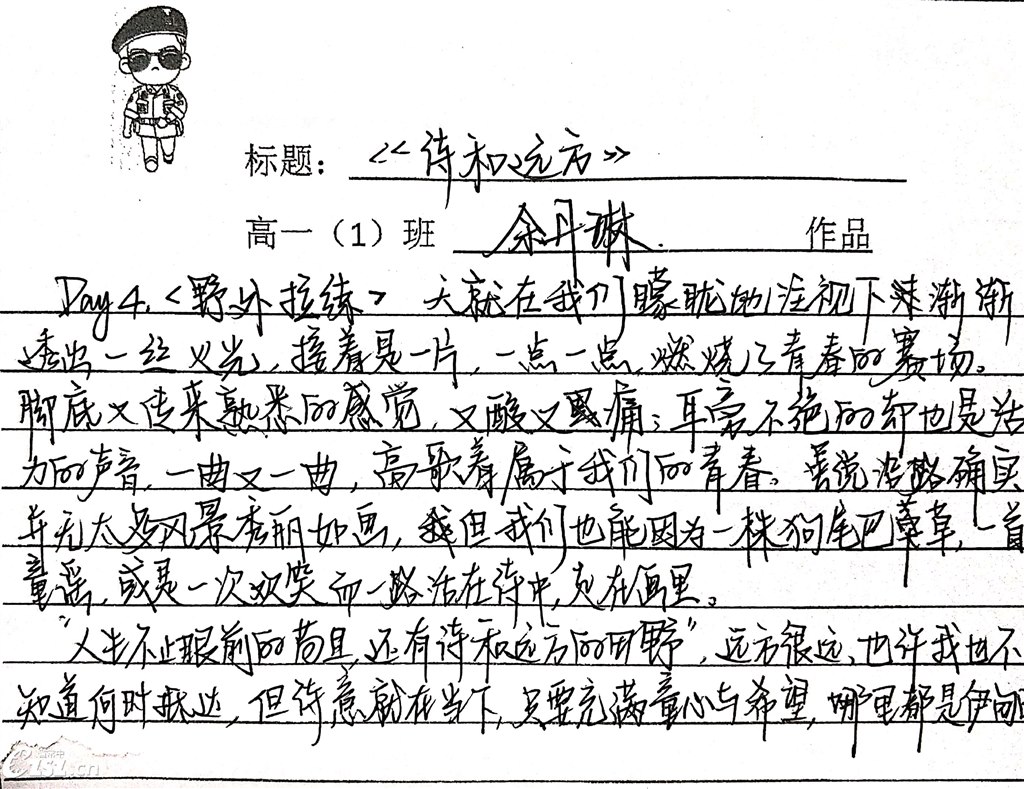 标题：《诗和远方》
高一（1）班 余丹琳 作品
Day 4.〈野外拉练〉 天就在我们朦胧地注视下渐渐
透出一丝火光，接着是一片，一点一点，燃烧了青春的赛场。
脚底又传来熟悉的感觉，又酸又痛；耳旁不绝的却也是活
力的声音，一曲又一曲，高歌着属于我们的青春。要说沿路确实
并无太多风景秀丽如画，但我们也能因为一株狗尾巴草，一首
童谣，或是一次欢笑而一路活在诗中，走在画里。
“人生不止眼前的苟且，还有诗和远方的田野”，远方很远，也许我也不
知道何时抵达，但诗意就在当下，只要充满童心与希望，哪里都是伊甸